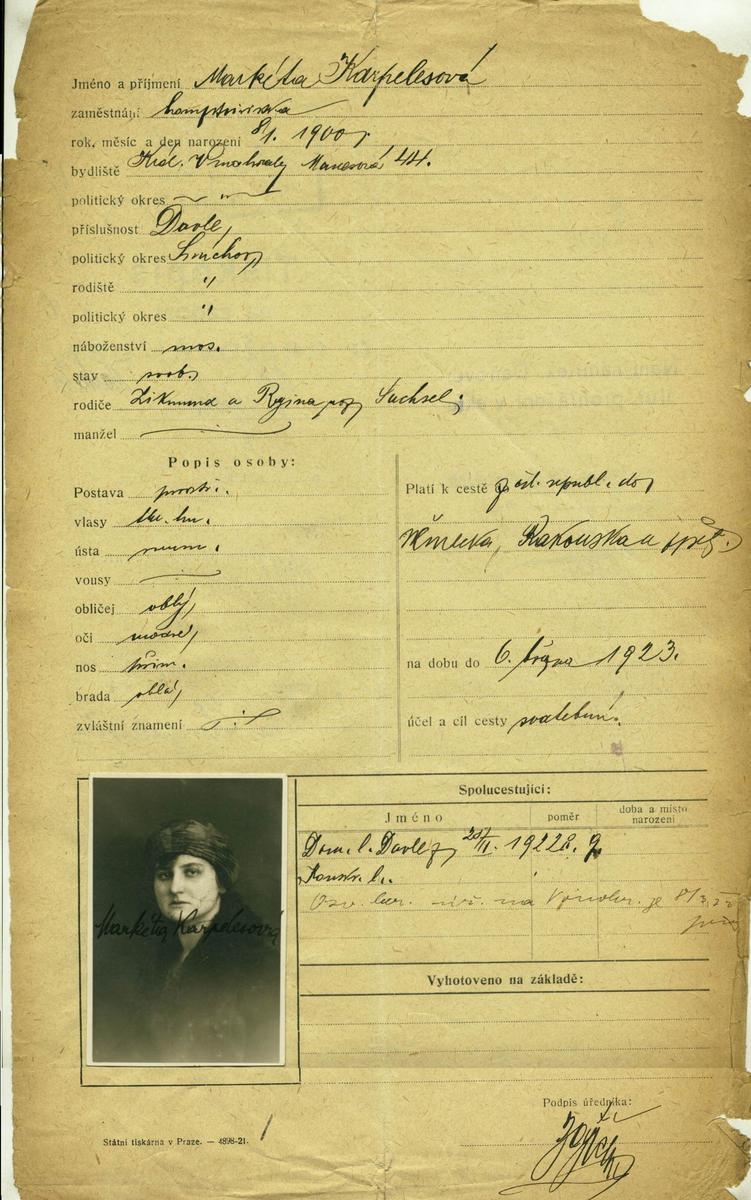 Jméno a příjmení Markéta Karpelesová
zaměstnání
rok, měsíc a den narození 8/1. 1900
bydliště Král. Vinohrady Manesová 44.
politický okres "
příslušnost Davle,
politický okres Smíchov
rodiště "
politický okres "
náboženství mos.
stav svob.
rodiče Zikmund a Regina roz. Sachsel;
manžel
Popis osoby:
Postava prostř.
vlasy
ústa
vousy
obličej oblý,
oči modré,
nos přim.
brada oblá,
zvláštní znamení
Platí k cestě z čsl. republ. do
Německa, Rakouska a zpět.
na dobu do 6. března 1923.
účel a cíl cesty svatební.
Spolucestující:
Jméno poměr doba a místo narození
Dom. l. Davle z 1922
na Vinohr.
Vyhotoveno na základě:
Markéta Karpelesová
Podpis úředníka:
Státní tiskárna v Praze. — 4898-21.